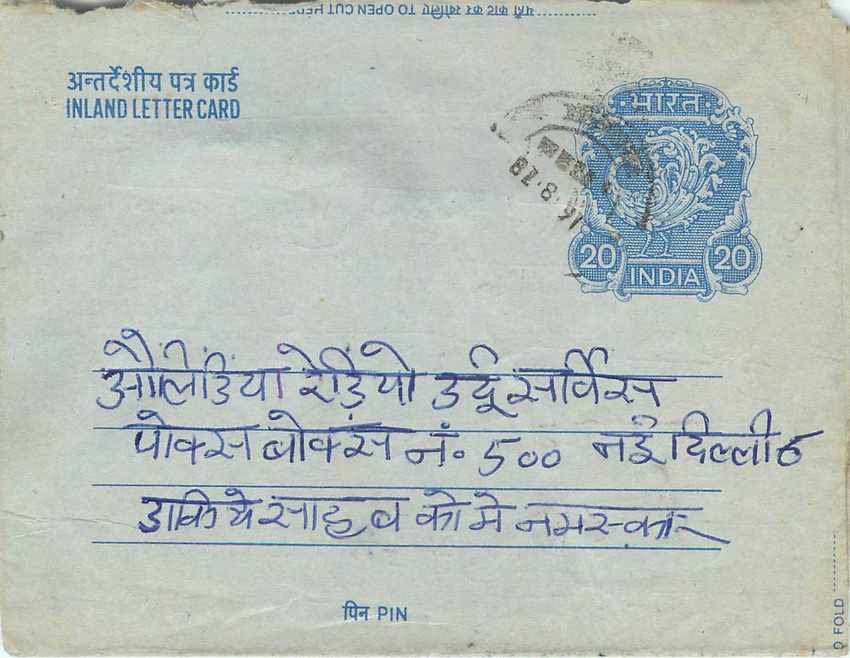 यहाँ काट कर खोलिए TO OPEN CUT HERE
अन्तर्देशीय पत्र कार्ड
INLAND LETTER CARD
भारत
16·8·78
20 INDIA 20
औलिडिंया रेड़ियो उर्दू सर्विस
पोक्स बोक्सं नं० 500 नई दिल्ली
डाकिये साहब को मे नमस्कार
पिन PIN
O FOLD